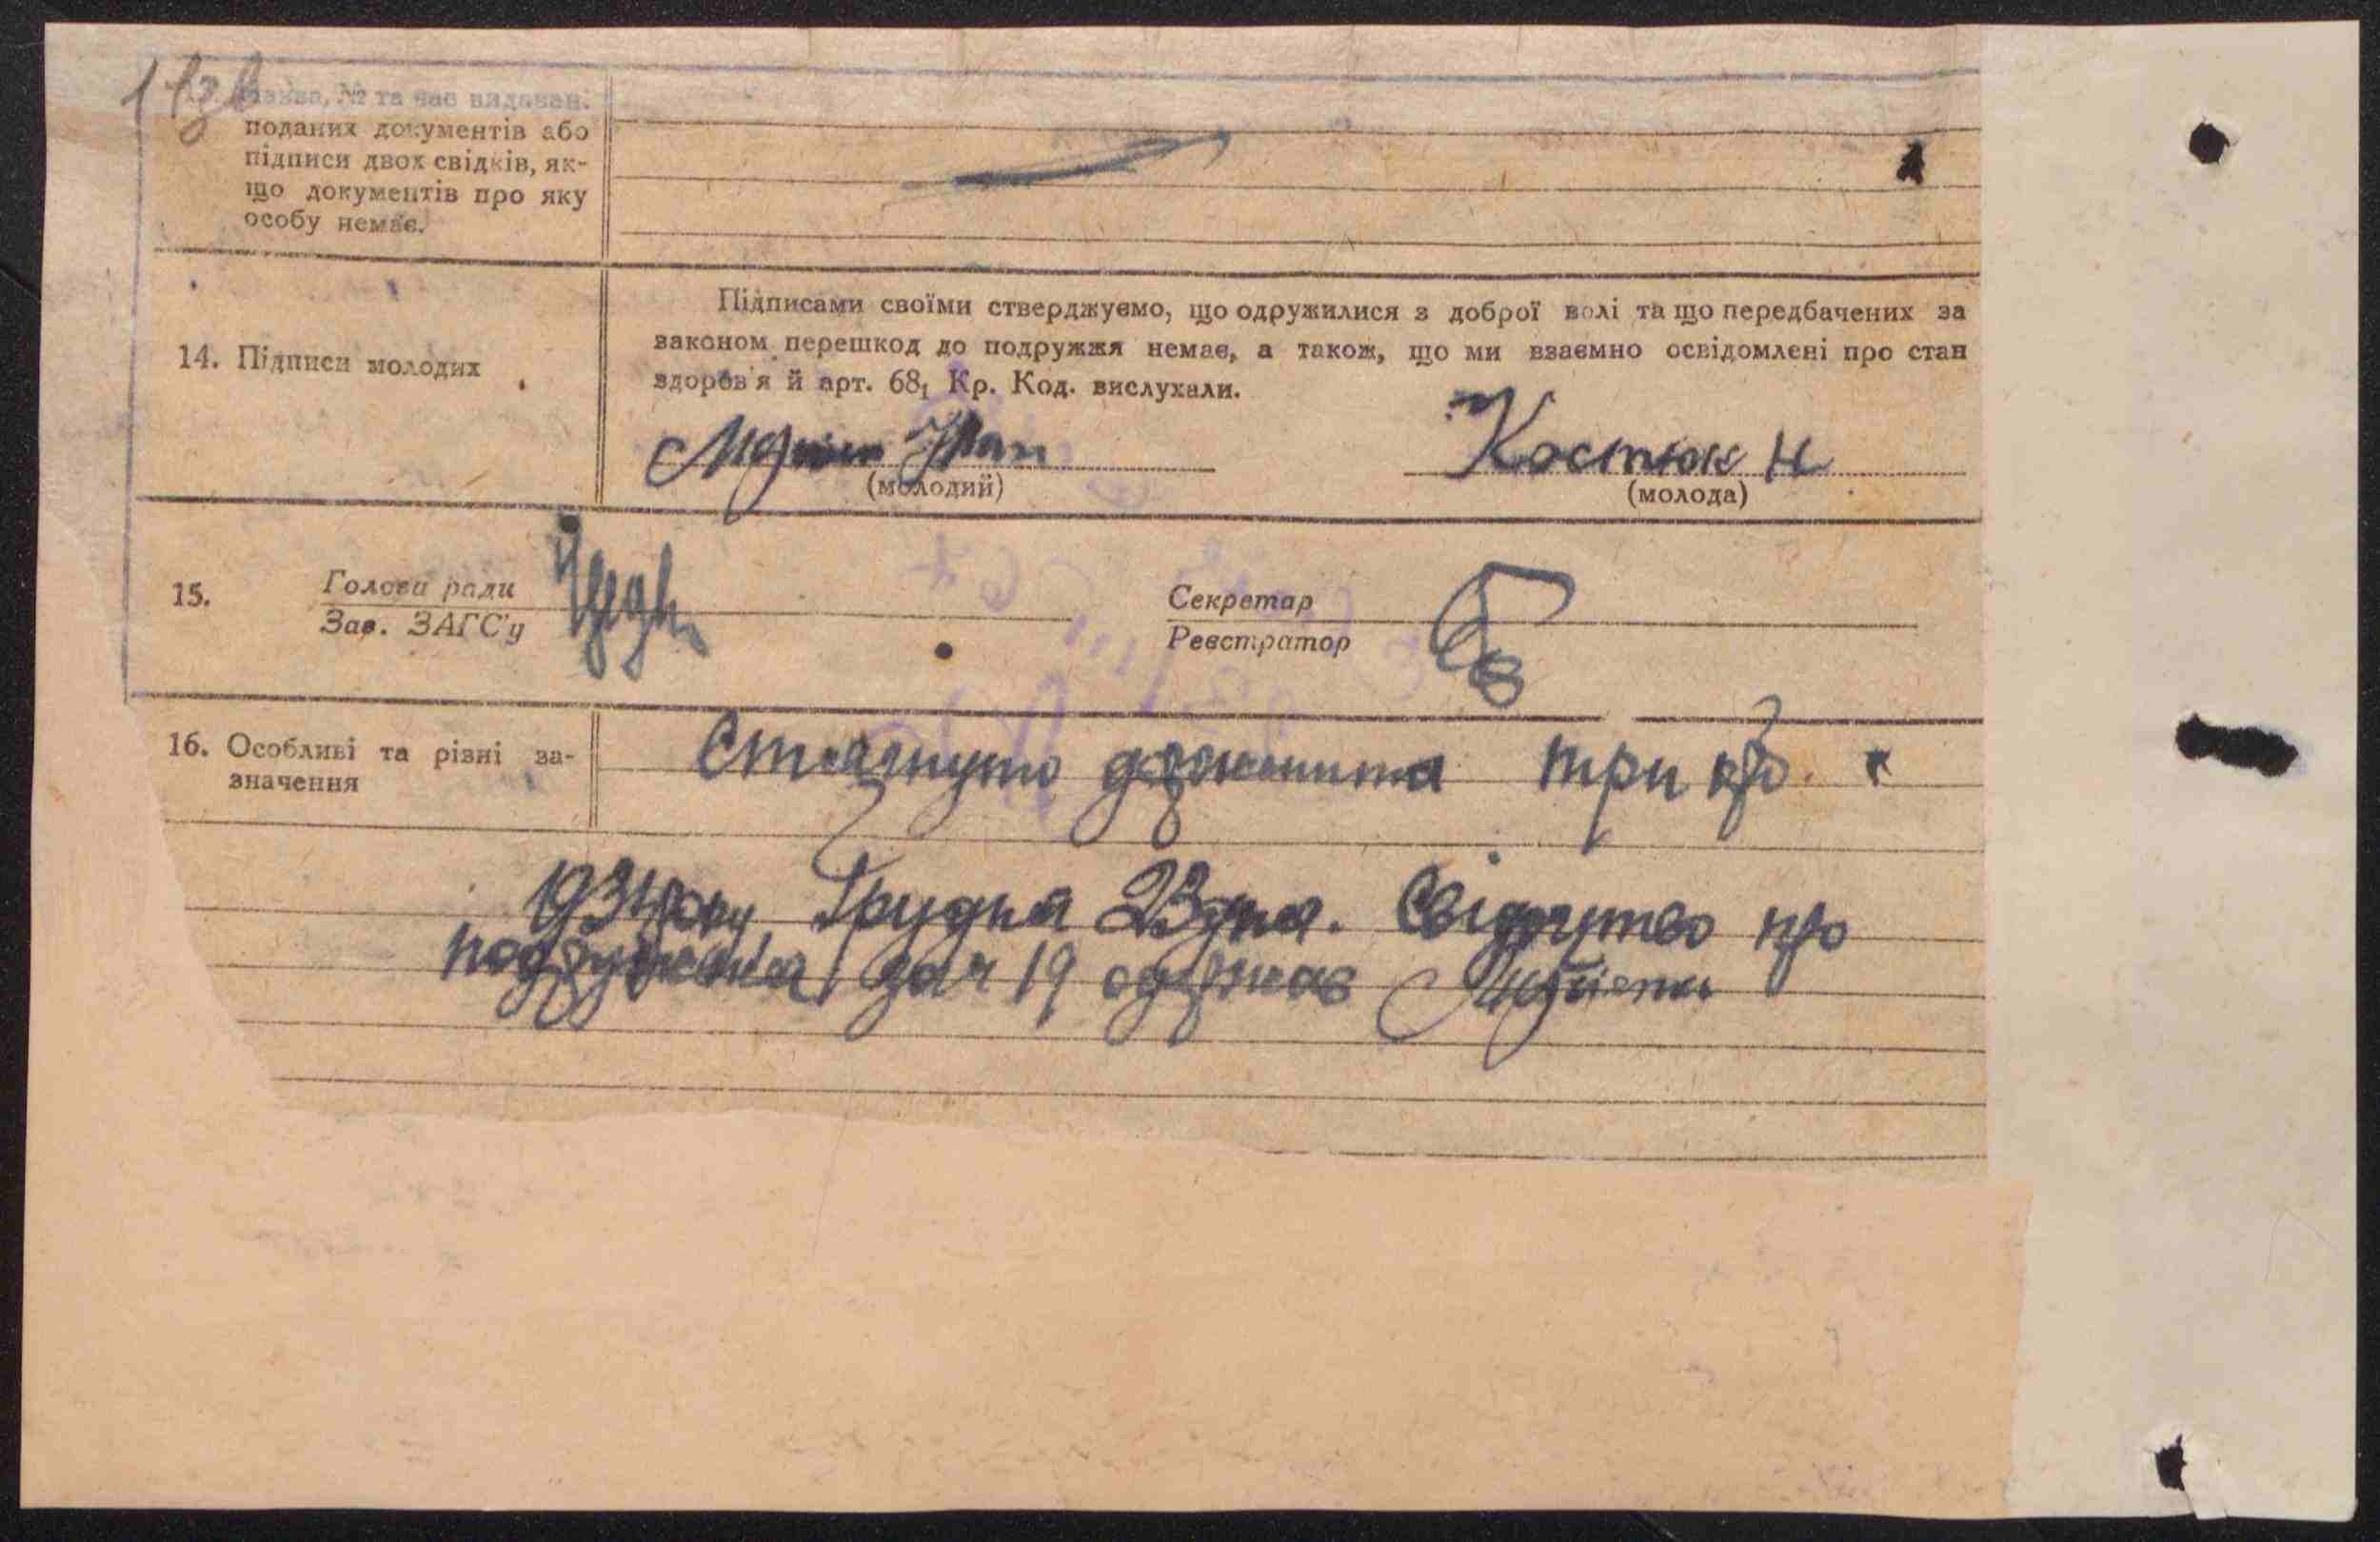 назва, № та час видаван.
поданих документів або
підписи двох свідків, як-
що документів про яку
особу немає.
14. Підписи молодих
Підписами своїми стверджуємо, що одружилися з доброї волі та що передбачених за
законом перешкод до подружжя немає, а також, що ми взаємно освідомлені про стан
здоров'я й арт. 68₁ Кр. Код. вислухали.
Іван Костюк Н
(молодий) (молода)
15. Голова ради Секретар
Зав. ЗАГС'у Реєстратор
16. Особливі та різні за-
значення
Стягнуто держмита три крб.
1934 року Грудня 23 дня. Свідоцтво про
подружжя за № 19 одержав